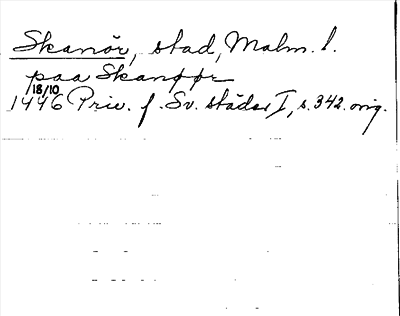 Skanör, stad, Malm. l.
paa Skanøør
18/10
1446 Priv. f. Sv. städer I, s. 342. orig.